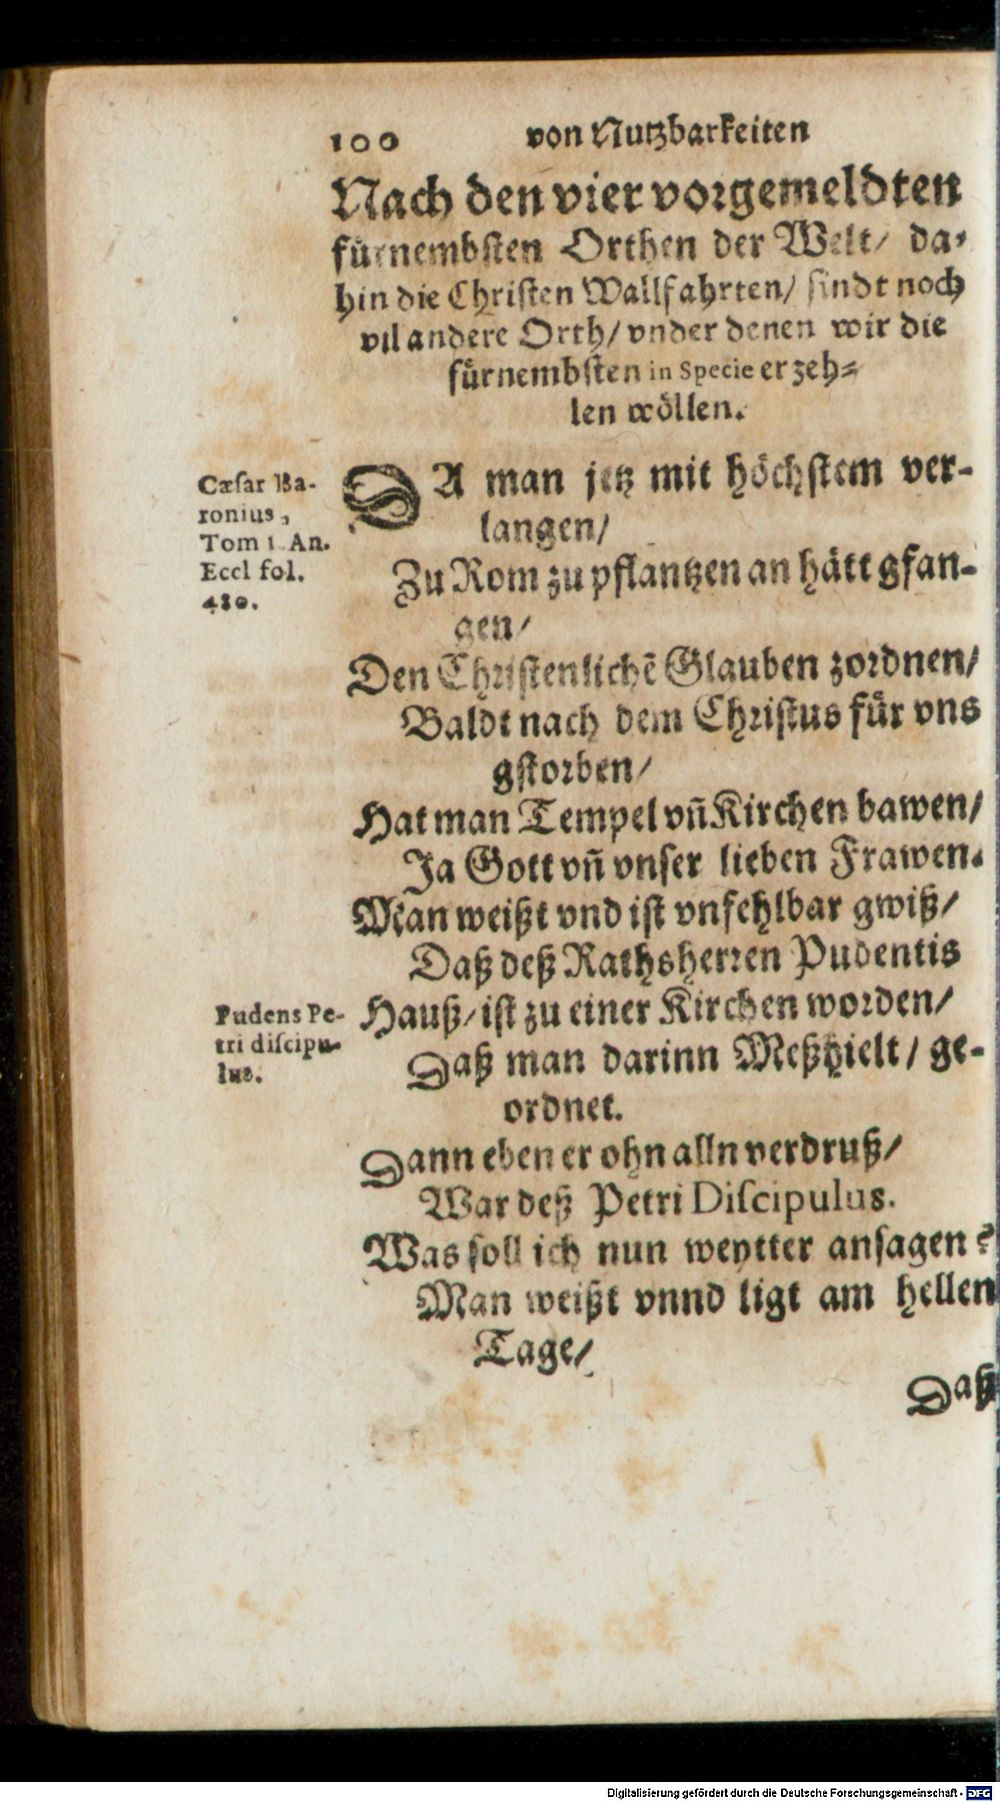 100 von Nutzbarkeiten
Nach den vier vorgemeldten
fürnembsten Orthen der Welt/ da-
hin die Christen Wallfahrten/ sindt noch
vil andere Orth/ vnder denen wir die
fürnembsten in Specie erzeh-
len wöllen.
Cæsar Ba-
ronius,
Tom 1. An.
Eccl fol.
480.
DA man jetz mit höchstem ver-
langen/
Zu Rom zu pflantzen an hätt gfan-
gen/
Den Christenlichē Glauben zordnen/
Baldt nach dem Christus für vns
gstorben/
Hat man Tempel vñ Kirchen bawen/
Ja Gott vñ vnser lieben Frawen.
Man weißt vnd ist vnfehlbar gwiß/
Daß deß Rathsherren Pudentis
Pudens Pe-
tri discipu-
lus.
Hauß/ ist zu einer Kirchen worden/
Daß man darinn Meßhielt/ ge-
ordnet.
Dann eben er ohn alln verdruß/
War deß Petri Discipulus.
Was soll ich nun weytter ansagen?
Man weißt vnnd ligt am hellen
Tage/
Daß
Digitalisierung gefördert durch die Deutsche Forschungsgemeinschaft - DFG